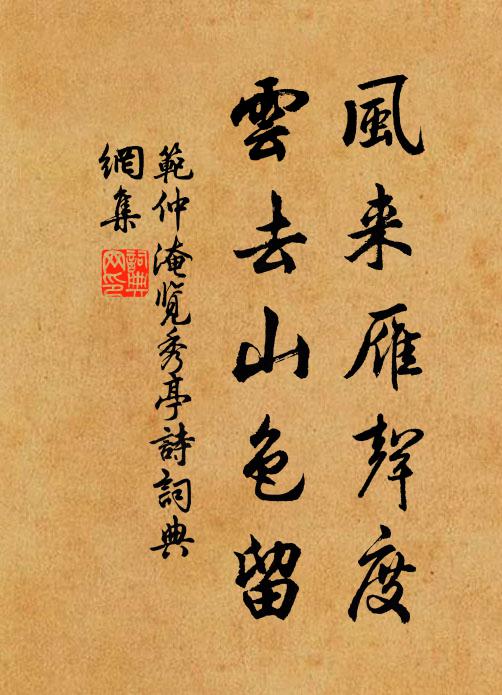 風来雁聲度
雲去山色留
範仲淹覽秀亭詩詞典
網集
詞典
网印